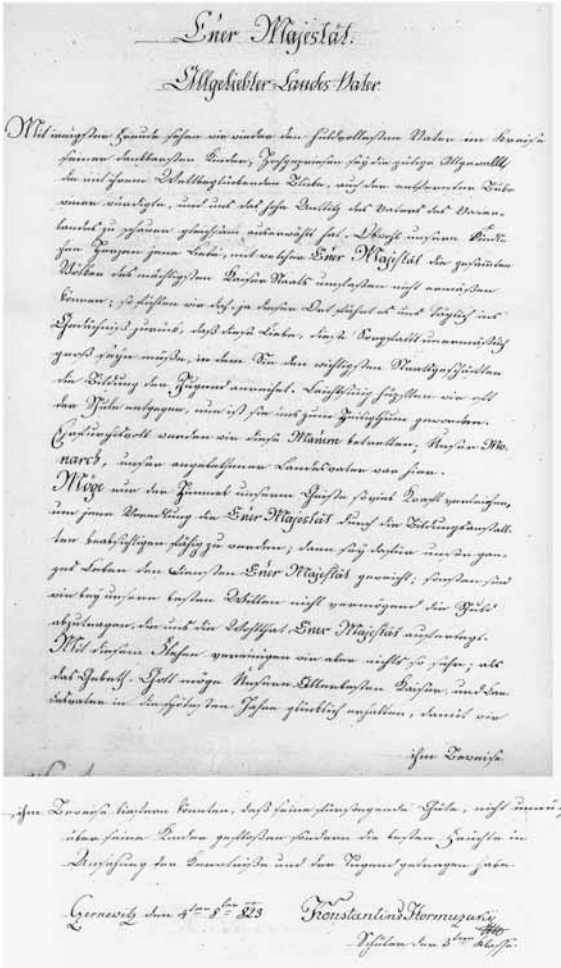 Euer Majestät.
Allgeliebter Landes-Vater.
Mit innigster Freude sehen wir wieder den huldvollesten Vater im Kreise
seiner dankbarsten Kinder, Hochgepriesen sey die gütige Allgewallt
die mit ihrem Weltbeglückenden Blicke, auch der entfernten Buko-
winer würdigte, und uns das hohe Antlitz des Vaters des Vater-
landes zu schauen gleichsam auserwählt hat. Obwohl unsern Kindli-
chen Herzen jene Liebe, mit welcher Euer Majestät die gesammten
Völker des mächtigsten Kaiser-Staats umfassen nicht ermäßen
können; so fühlen wir doch, ja dieser Ort führt es uns täglich ins
Gedächniß zurück, daß diese Liebe, diese Sorgfallt unermäßlich
groß seyn müße, in dem Sie den wichtigsten Staatsgeschäften
die Bildung der Jugend anreihet. Leichtsinnig hüpften wir oft
der Schule entgegen, nun ist sie uns zum Heiligthum geworden.
Ehrfurchtsvoll werden wir diese Mauern betretten; Unser Mo-
narch, unser angebetheter Landesvater war hier.
Möge nur der Himmel unserm Geiste soviel Kraft verleihen,
um jener Veredlung die Euer Majestät durch die Bildungsanstall-
ten beabsichtigen fähig zu werden; dann sey dafür unser gan-
zes Leben den Diensten Euer Majestät geweiht; sonsten sind
wir bey unserm besten Willen nicht vermögend die Schuld
abzutragen, die uns die Wohlthat Euer Majestät auferlegt.
Mit diesem Flehen vereinigen wir aber nichts so sehr; als
das Gebeth. Gott möge Unsern Allerbesten Kaiser, und Lan-
desvater in die spätesten Jahre glücklich erhalten, damit wir
ihm Beweise
ihm Beweise liefern könnten, daß seine fürsorgende Güte, nicht
über seine Kinder geflossen sondern die besten Früchte in
Ansehung der Kenntniße und der Tugend getragen habe.
Czernowitz den 4ten 8ber 823 Konstantin Hormuzaky
Schüler der 3ten Klasse.